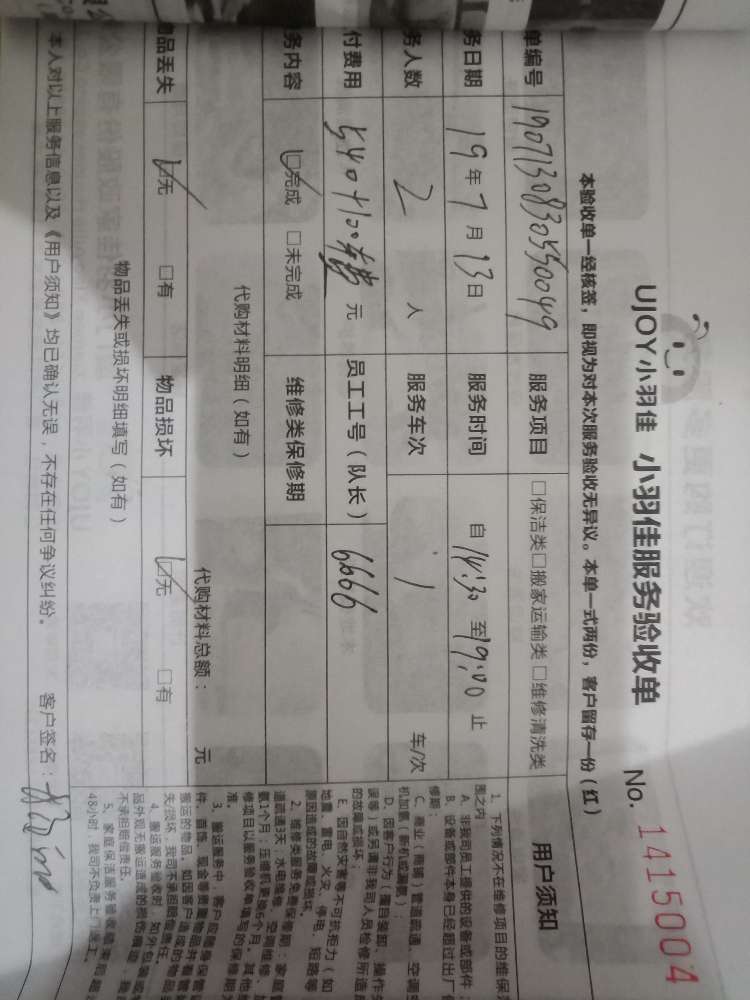 UJOY小羽佳 小羽佳服务验收单 No. 1415004
本验收单一经核签，即视为对本次服务验收无异议。本单一式两份，客户留存一份（红）
单编号 19071308305550049 服务项目 □保洁类□搬家运输类 □维修清洗类
务日期 19年7月13日 服务时间 自14:30至19:00止
务人数 2人 服务车次 1 车/次
付费用 540+100 元 员工工号（队长） 6666
务内容 ☑完成 □未完成 维修类保修期
代购材料明细（如有）
代购材料总额： 元
物品丢失 ☑无 □有 物品损坏 ☑无 □有
物品丢失或损坏明细填写（如有）
本人对以上服务信息以及《用户须知》均已确认无误，不存在任何争议纠纷。 客户签名：
用户须知
1、下列情况不在维修项目的维保
围之内：
A、非我司员工提供的设备或部件；
B、设备或部件本身已经超过出厂
修期；
C、商业（商铺）管道疏通、空调
机加氨（新机或漏氨）；
D、因客户行为（擅自装卸、操作
误等）或另请非我司人员检修所造
的故障或损坏；
E、因自然灾害等不可抗拒为（如
地震、雷电、火灾、停电、短路等
原因造成的故障或损坏。
2、维修类服务免费保修期：家庭管
道疏通3天；水电维修、空调维修、
氨1个月；压缩机更换6个月。其他维
修项目以服务验收单填写的保修期为
准。
3、搬运服务中，客户应随身保管
件、首饰、现金等贵重物品并看管
搬运的物品。如因客户造成的物品
失/损坏，我司不承担赔偿责任。
4、搬运服务验收时，如外包装或
品外观无搬运造成的损伤痕迹，
不承担赔偿责任。
5、家庭保洁服务验收结束后超
48小时，我司不负责上门返工。